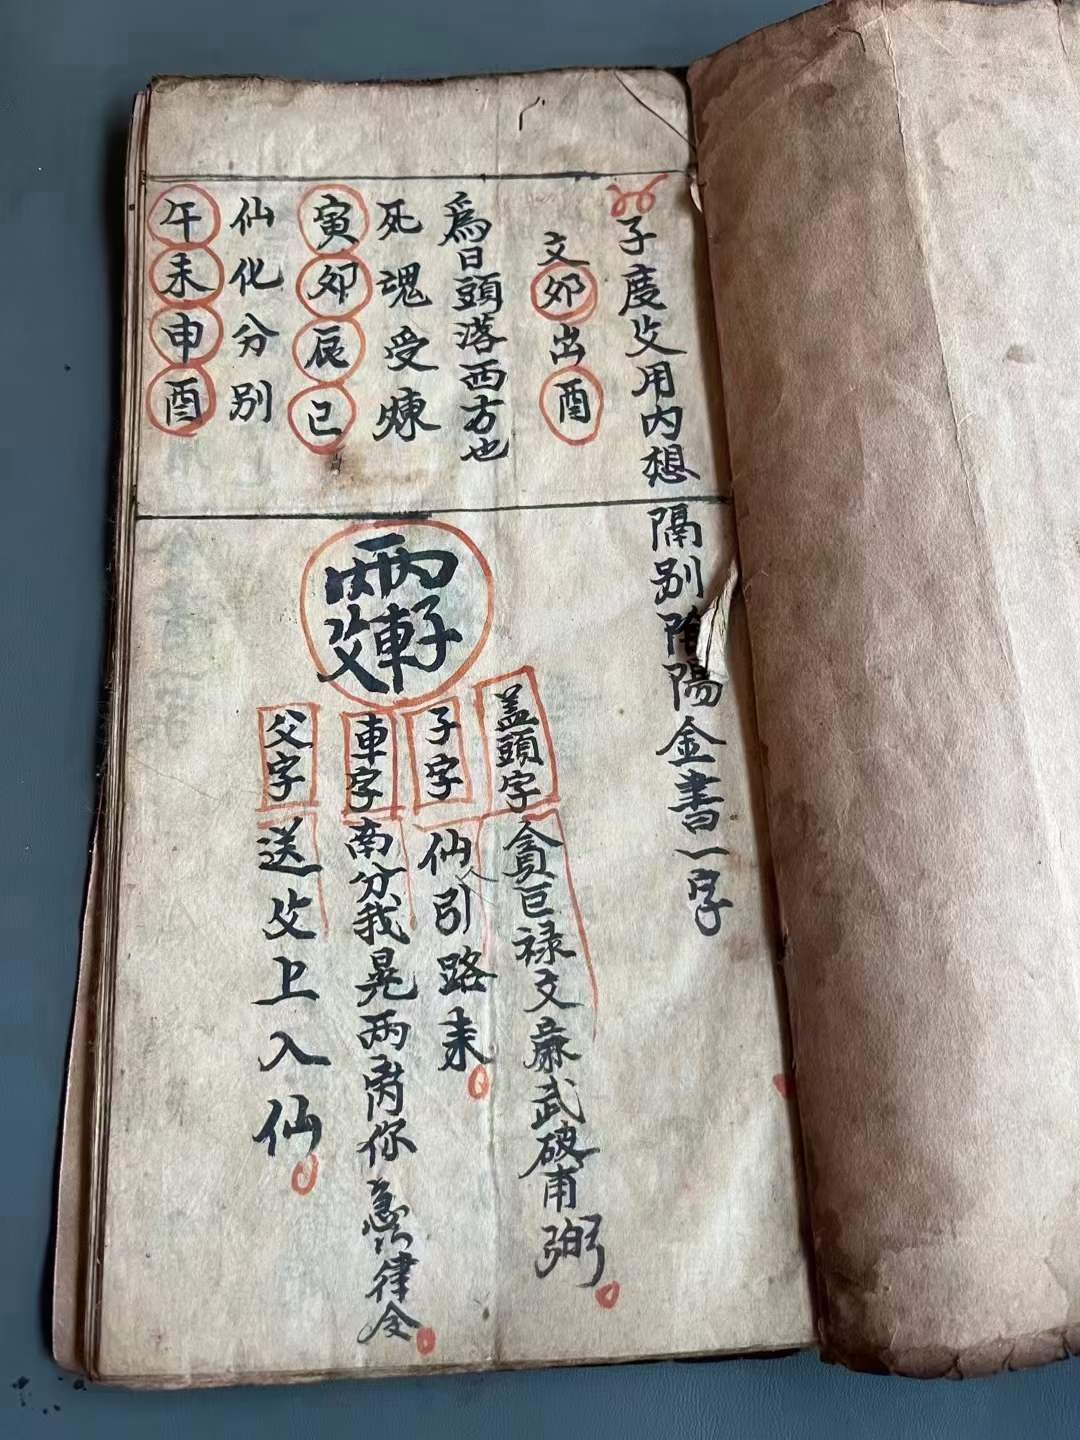 子度父用内想
文卯出酉
為日頭落西方也
死魂受煉
寅卯辰巳
仙化分别
午未申酉
隔别陰陽金書一字
蓋頭字
貪巨禄文廉武破甫弼
子字
仙人引路来
車字
南分我晃两 你急律令
父字
送父上入仙